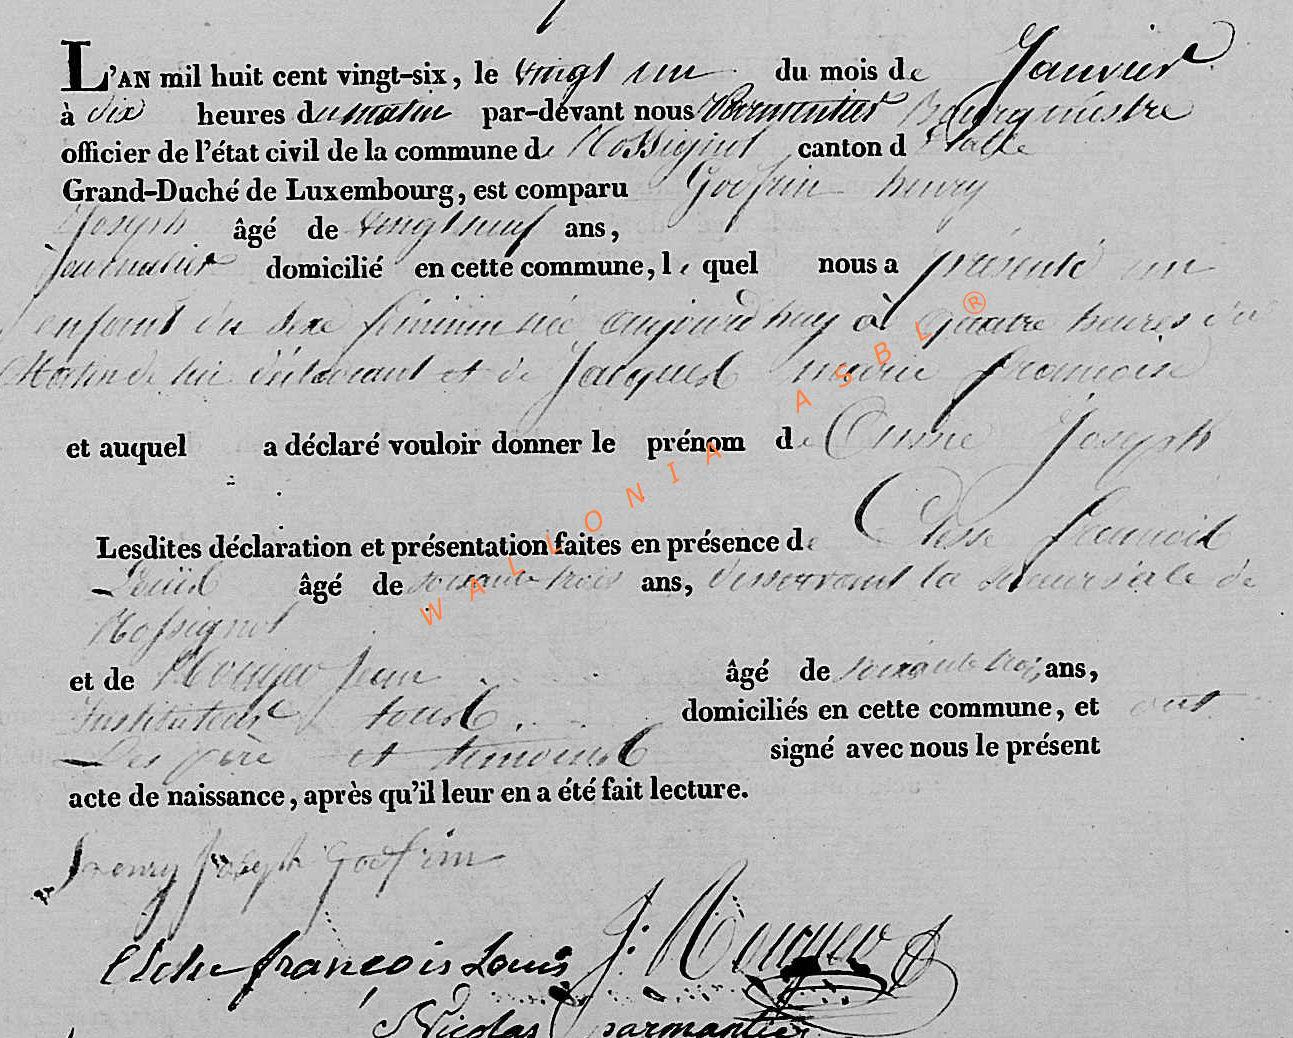 L'AN mil huit cent vingt-six, le vingt un du mois de Janvier
à dix heures du matin par-devant nous Parmentier Bourguemestre
officier de l'état civil de la commune de Rossignol canton d'Etalle
Grand-Duché de Luxembourg, est comparu Goffin henry
Joseph âgé de vingt neuf ans,
journalier domicilié en cette commune, le quel nous a présenté un
enfant du sexe féminin née aujourd'huy à quatre heures du
Matin de lui déclarant et de Jacques marie francoise
et auquel a déclaré vouloir donner le prénom de Anne Joseph
Lesdites déclaration et présentation faites en présence de francois
Louis âgé de soixante trois ans, desservant la succursale de
Rossignol
et de Jean âgé de soixante trois ans,
Instituteur tous domiciliés en cette commune, et ont
Les père et temoins signé avec nous le présent
acte de naissance, après qu'il leur en a été fait lecture.
henry Joseph
françois Louis J:
Nicolas parmantier
WALLONIA ASBL ®